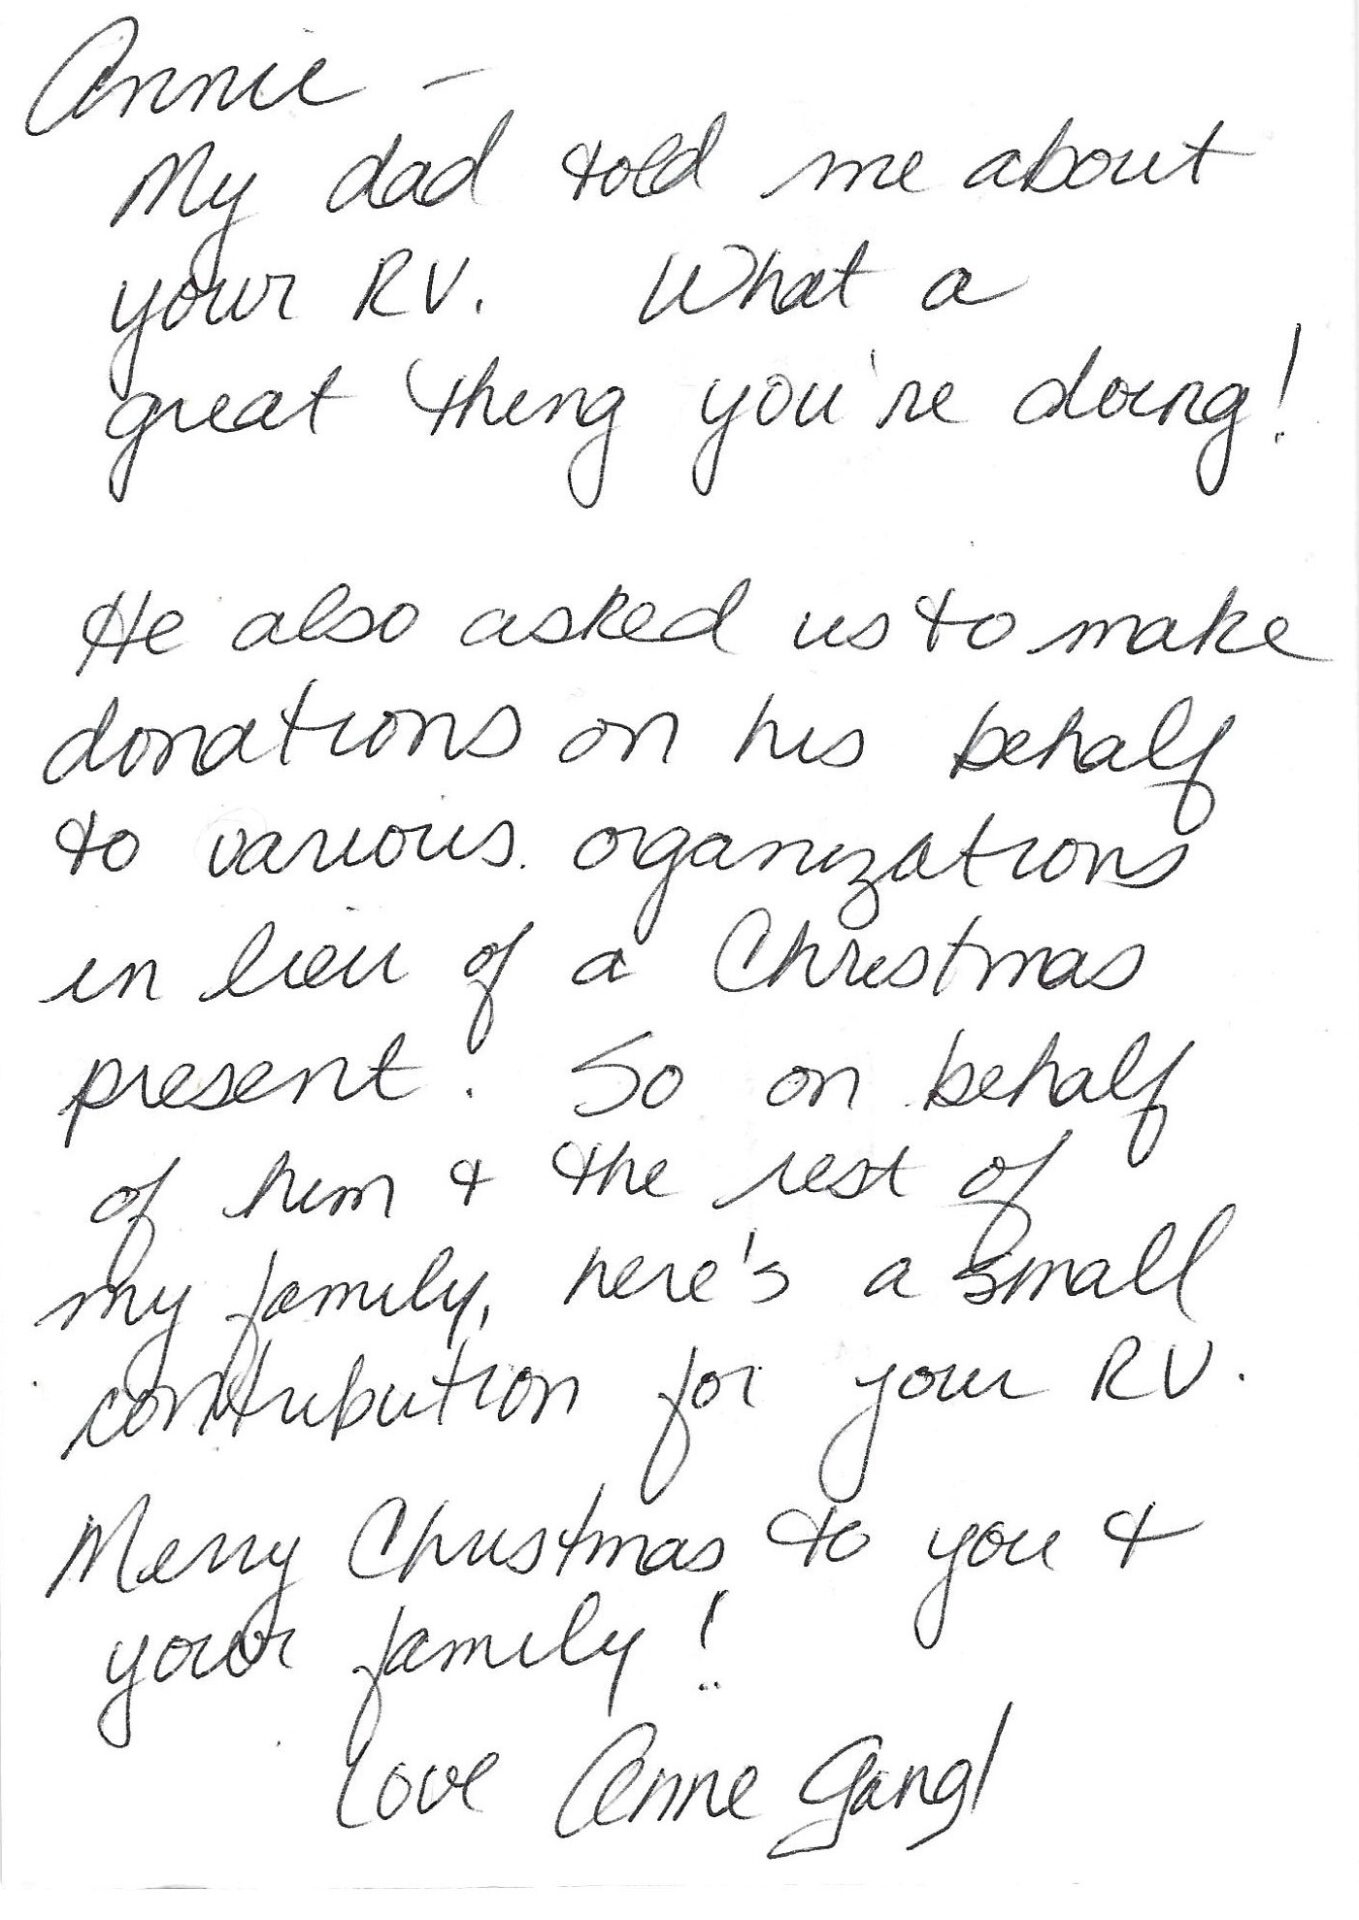 Annie -
My dad told me about
your RV. What a
great thing you're doing!
He also asked us to make
donations on his behalf
to various organizations
in lieu of a Christmas
present. So on behalf
of him & the rest of
my family, here's a small
contribution for your RV.
Merry Christmas to you &
your family!
Love Anne Gangl